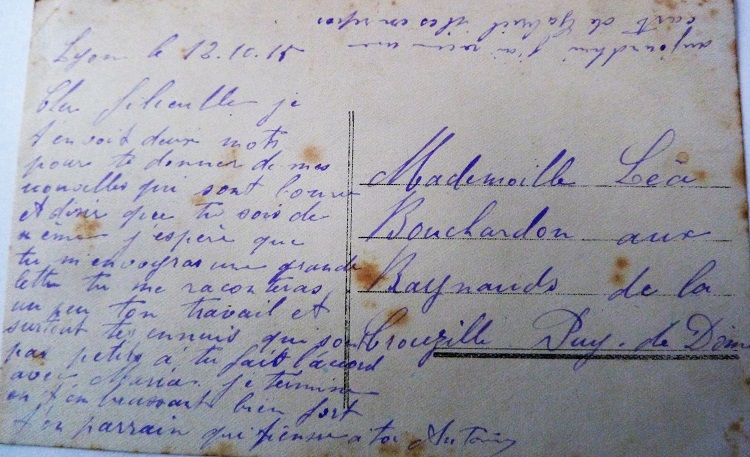 Lyon le 12.10.15
Cher filieulle je
t'envoit deux mots
pour te donner de mes
nouvelles qui sont bonne
et désir que tu sois de
même j'espère que
tu m'envoyras une grande
lettre tu me raconteras
un peu ton travail et
surtout tes ennuis qui sont
pas petits à tu fait l'acord
avec Maria je termine
en t'embrassant bien fort
ton parrain qui pense à toi Antoine
aujourdhui j'ai recu une
cart de Gabriel il es en repos
Mademoille Léa
Bouchardon aux
Raynauds de la
Crouzille Puy. de Dôme